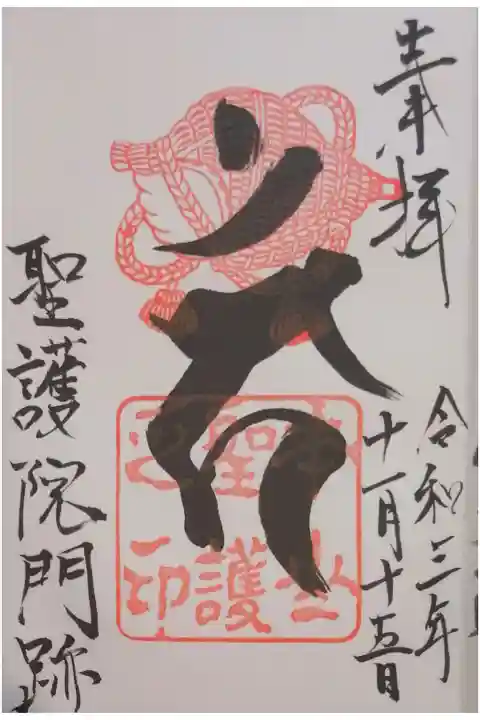 奉拝
令和三年
十一月十五日
聖護
印
聖護院門跡